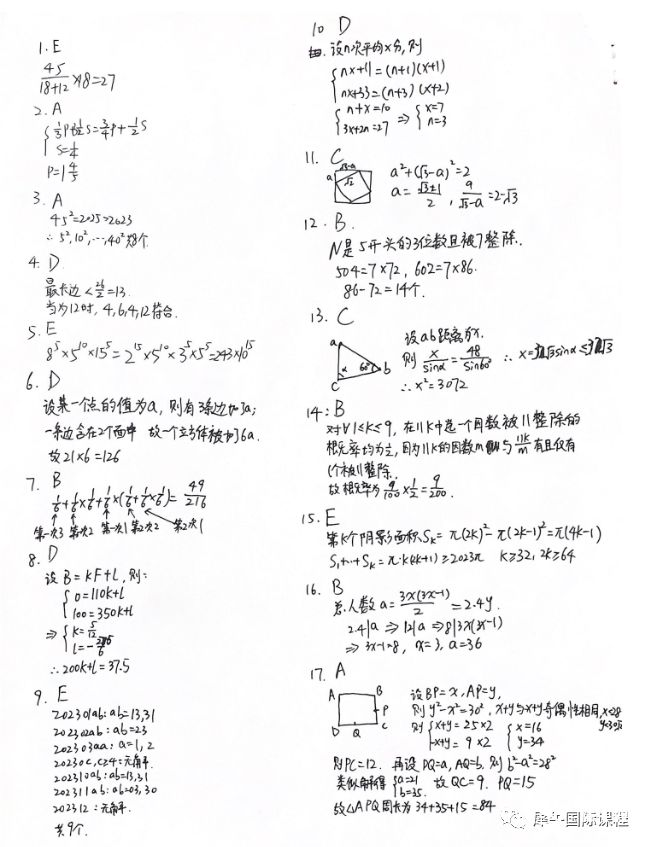 1. E
45/(18+12) ×18=27
2. A
{ 1/3P+1/2S=3/4P+1/2S
S=1/4
P=1 4/5
3. A
45²=2025>2023
∴ 5²,10²,…,40²共8个.
4. D.
最长边<26/2=13.
当为12时, 4,6,4,12符合.
5. E
8⁵×5¹⁰×15⁵=2¹⁵×5¹⁰×3⁵×5⁵=243×10¹⁵
6. D
设某一个点的值为a, 则有3条边加3a;
一条边含在2个面中 故一个立方体被加6a.
故21×6=126
7. B
1/6+1/6×1/6+1/6×(1/6+1/6×1/6)=49/216
第一次3 第一次2 第一次1 第2次2 第2次1
8. D
设B=kF+l, 则:
{ 0=110k+l
100=350k+l
⇒ { k=5/12
∴200k+l=37.5
9. E
202301ab: ab=13,31
202302ab: ab=23
202303aa: a=1,2
20230c, c≥4: 无解.
202310ab: ab=13,31
202311ab: ab=03,30
202312: 无解.
共9个.
10 D
设n次平均x分, 则
{ nx+11=(n+1)(x+1)
nx+33=(n+3)(x+2)
{ n+x=10
3x+2n=27 ⇒ { x=7
n=3
11. C
√3-a
a
√2
a²+(√3-a)²=2
a=(√3±1)/2, a/(√3-a)=2-√3
12. B.
N是5开头的3位数且被7整除.
504=7×72, 602=7×86.
86-72=14个.
13. C
a
α
60°
b
c
设ab距离为x.
则 x/sinα=48/sin60° ∴ x=32√3sinα≤32√3
∴x²=3072
14: B
对∀1≤k≤9, 在11k中选一个因数被11整除的
概率均为1/2, 因为11k的因数m与11k/m有且仅有
1个被11整除.
故概率为9/100×1/2=9/200.
15. E
第k个阴影面积Sk=π(2k)²-π(2k-1)²=π(4k-1)
S1+…+Sk=π·k(2k+1)≥2023π k≥32, 2k≥64
16. B
总人数a=3x(3x-1)/2=2.4y.
2.4|a ⇒12|a ⇒8|3x(3x-1)
⇒ 3x-1=8, x=3, a=36
17. A
A B
P
D Q C
设BP=x, AP=y,
则y²-x²=30², x+y与x-y奇偶性相同,
则 { x+y=25×2
-x+y=9×2 { x=16
y=34
则PC=12. 再设DQ=a, AQ=b. 则b²-a²=28²
类似解得 { a=21
b=35. 故QC=9. PQ=15
故△APQ周长为34+35+15=84
犀牛国际课程